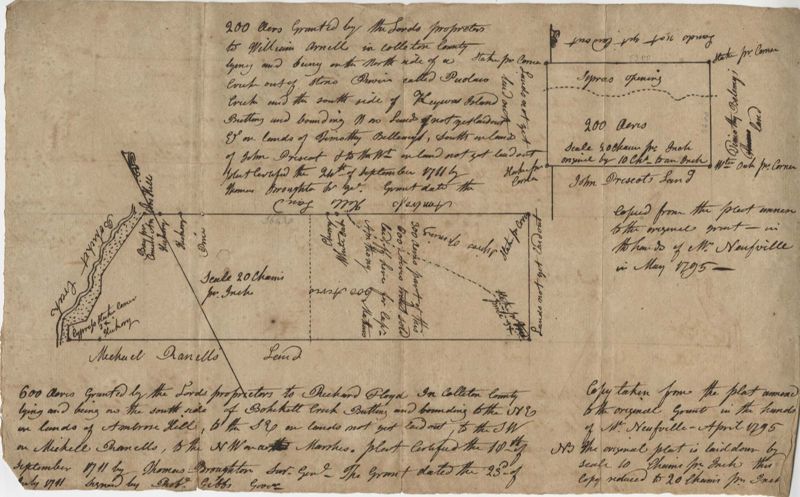 200 Acres Granted by the Lords proprietors
to William Arnell in Colleton County
lying and being on the North side of a
Creek out of Stono River called
Creek and the south side of Keywas Island
Butting and bounding N on Lands not yet laid out
E on lands of Timothy Bellamy, South on land
of John Prescot & to the Wt on land not yet laid out
plat Certified the 24th of September 1711 by
Thomas Broughton Sr Genl. Grant dated the
Stake pr. Corner
Lands not yet laid out
Stake pr. Corner
Lands not yet laid out
Stake pr. Corner
Sypras opening
200 Acres
Scale 20 Chains pr Inch
original by 10 Chs. pr an Inch
Timothy Belamy's land
Wt Oak pr. Corner
John Prescots Land
Copied from the plat annexed
to the original grant — in
the hands of Mr. Neufville
in May 1795 —
Creek
Hickory
Hickory
Pine
Cypress Stake Corner
Hickory
Scale 20 Chains
pr Inch
White Oak
300 Acres
300 Acres part of this
600 Acres
Cypress
Stake pr. Corn
Lands not lay'd out
Michael Ranells Land
600 Acres Granted by the Lords proprietors to Richard Floyd In Colleton County
lying and being on the south side of Bohikett Creek Butting and bounding to the NE
on lands of Ambrose Hill, to the SE on lands not yet laid out, to the SW
on Michell Ranells, to the NW on Marshes. plat Certified the 18th of
September 1711 by Thomas Broughton Sur. Genl — The Grant dated the 23d of
July 1711 Signed by Robt. Gibbs Govr
Copy taken from the plat annexed
to the original Grant in the hands
of Mr. Neufville - April 1795
NB the original plat is laid down by
scale 10 Chains pr Inch this
Copy reduced to 20 Chains pr Inch